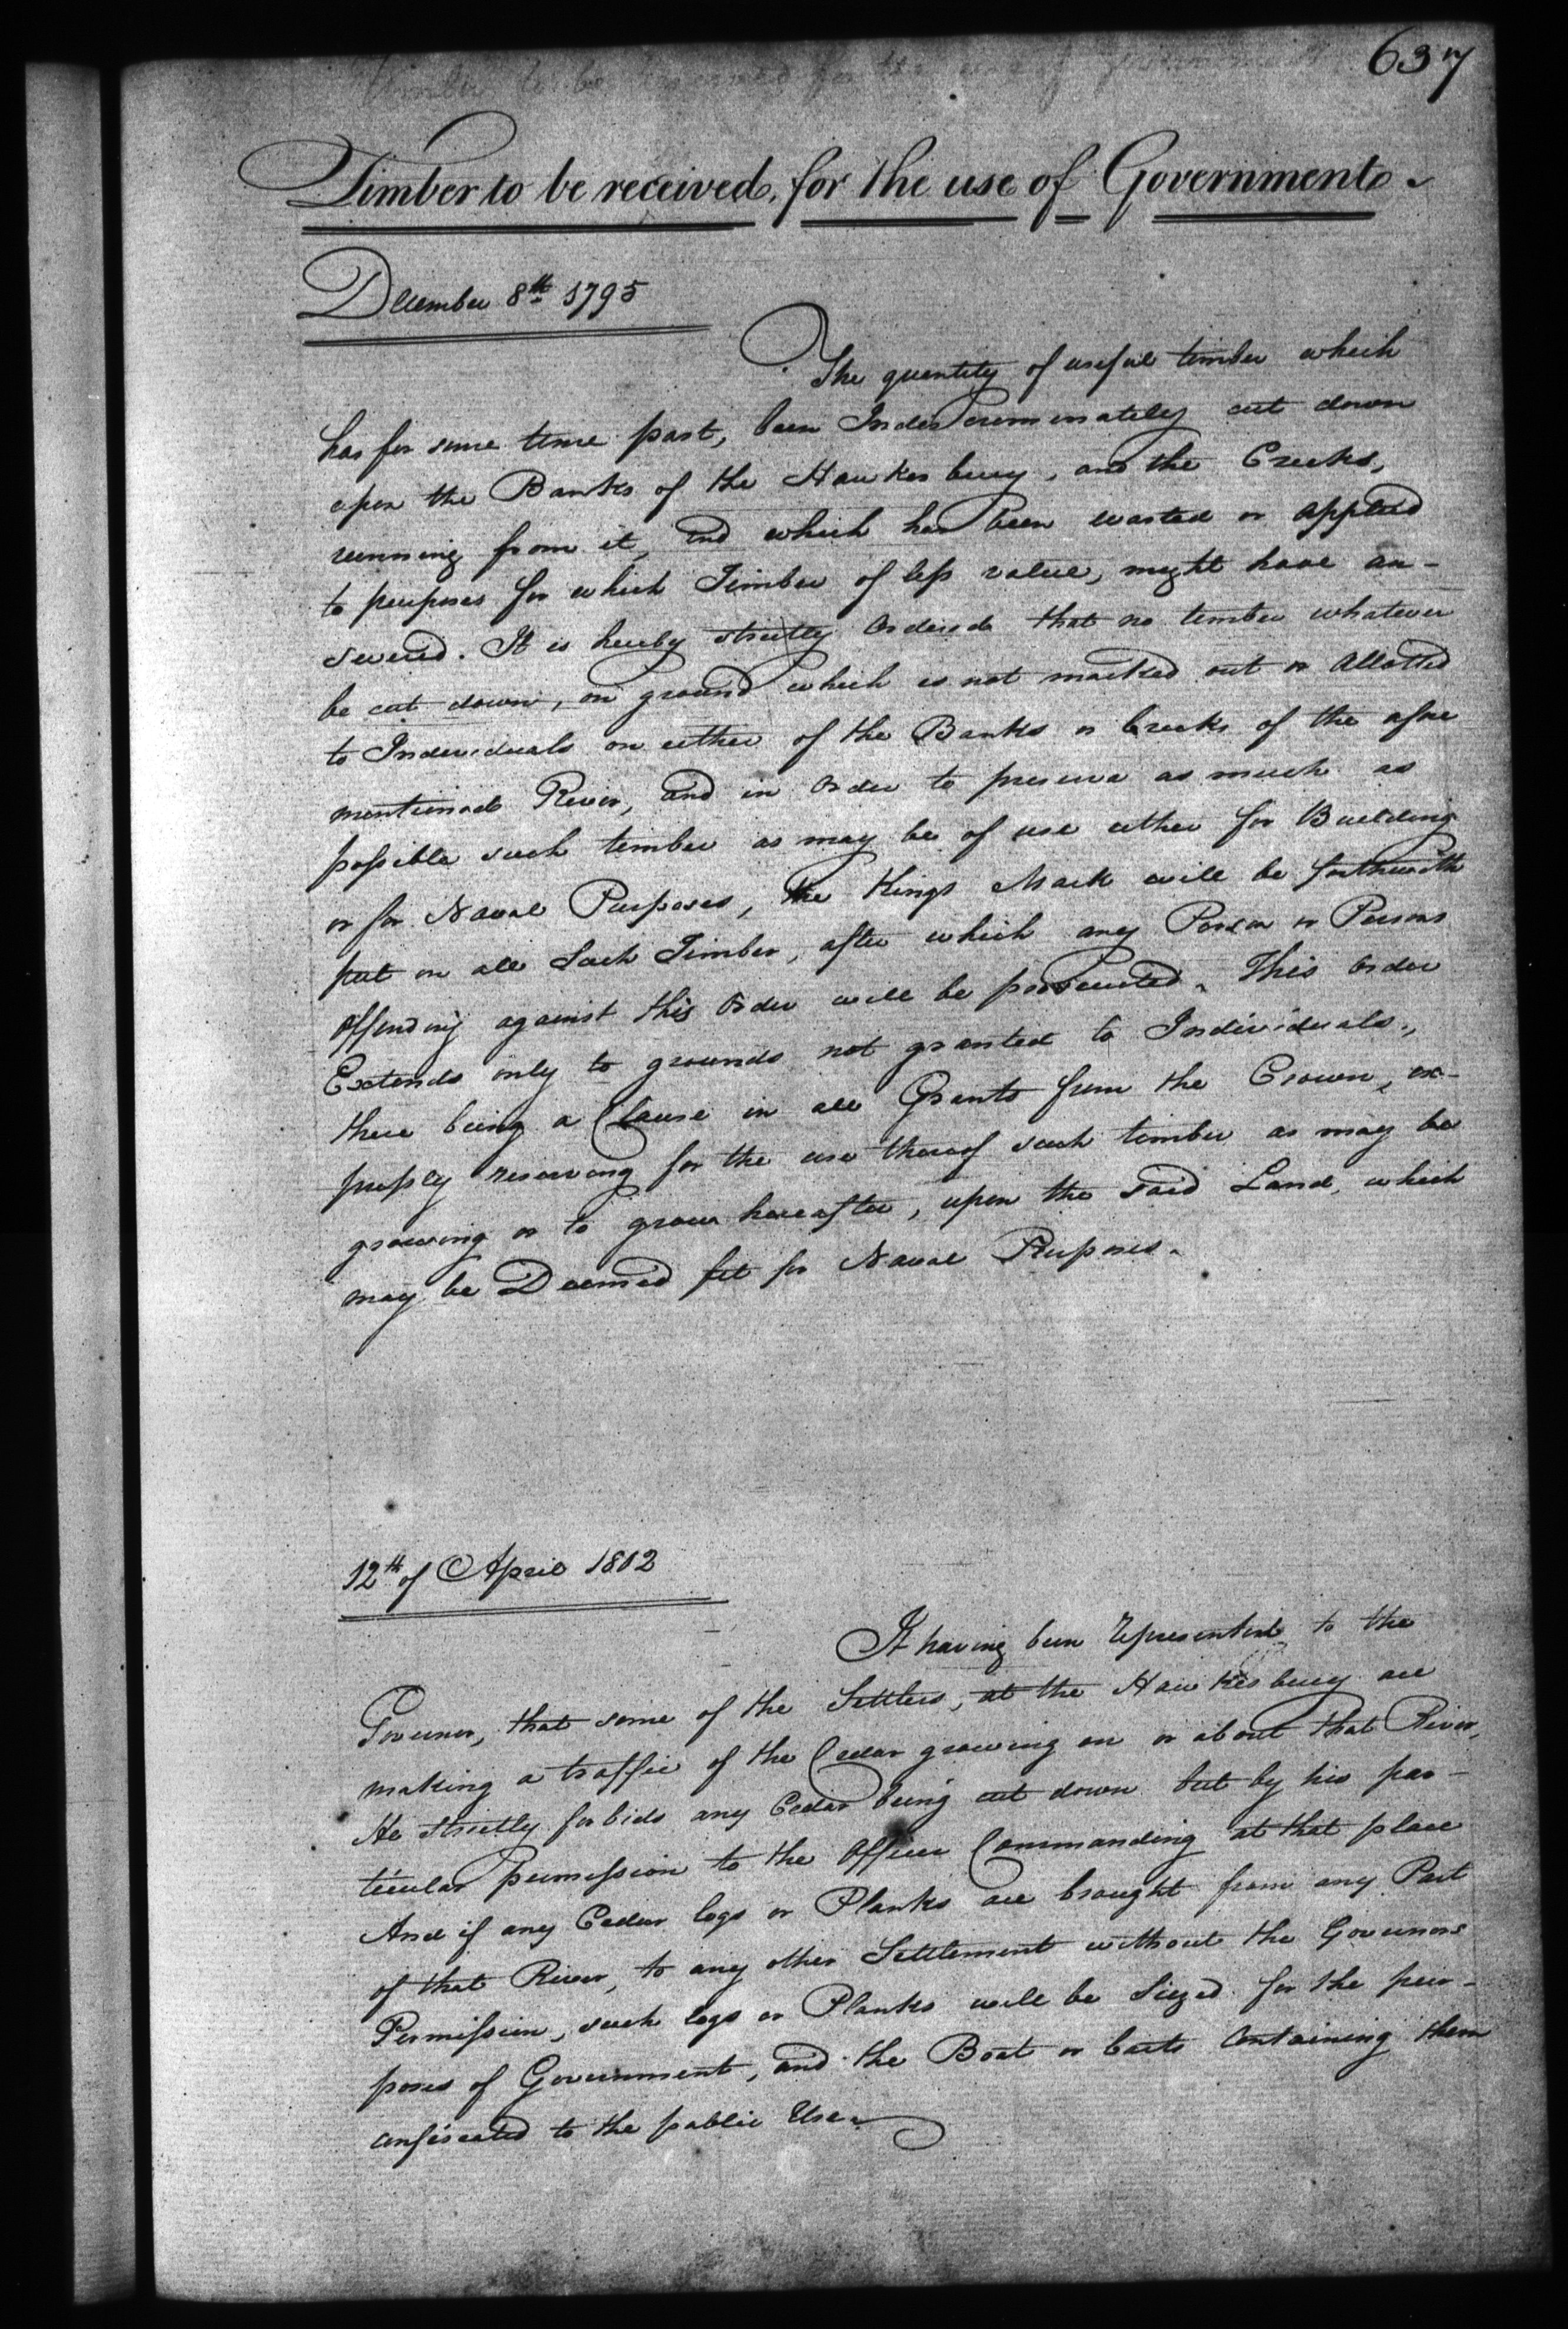 637
Timber to be reserved for the use of Government
Timber to be received, for the use of Government.
December 8th 1795
The quantity of useful timber which
has for some time past, been Indiscriminately cut down
upon the Banks of the Hawkesbury, and the Creeks,
running from it, and which has been wasted or applied
to purposes for which Timber of less value, might have an-
swered. It is hereby strictly Ordered that no timber whatever
be cut down, on ground which is not marked out or Allotted
to Individuals on either of the Banks or Creeks of the afore
mentioned River, and in Order to preserve as much as
possible such timber as may be of use either for Building
or for Naval Purposes, the Kings Mark will be forthwith
put on all Such Timber, after which any Person or Persons
Offending against this Order will be prosecuted. This Order
Extends only to grounds not granted to Individuals,
there being a Clause in all Grants from the Crown, ex-
pressly reserving for the use thereof such timber as may be
growing or to grow hereafter, upon the said Land, which
may be Deemed fit for Naval Purposes.
12th of April 1802
It having been represented to the
Governor, that some of the Settlers, at the Hawkesbury are
making a traffic of the Cedar growing on or about that River,
He strictly forbids any Cedar being cut down but by his par-
ticular permission to the Officer Commanding at that place
And if any Cedar logs or Planks are brought from any Part
of that River, to any other Settlement without the Governors
Permission, such logs or Planks will be Siezed for the pur-
poses of Government, and the Boat or Carts Containing them
confiscated to the public Use.